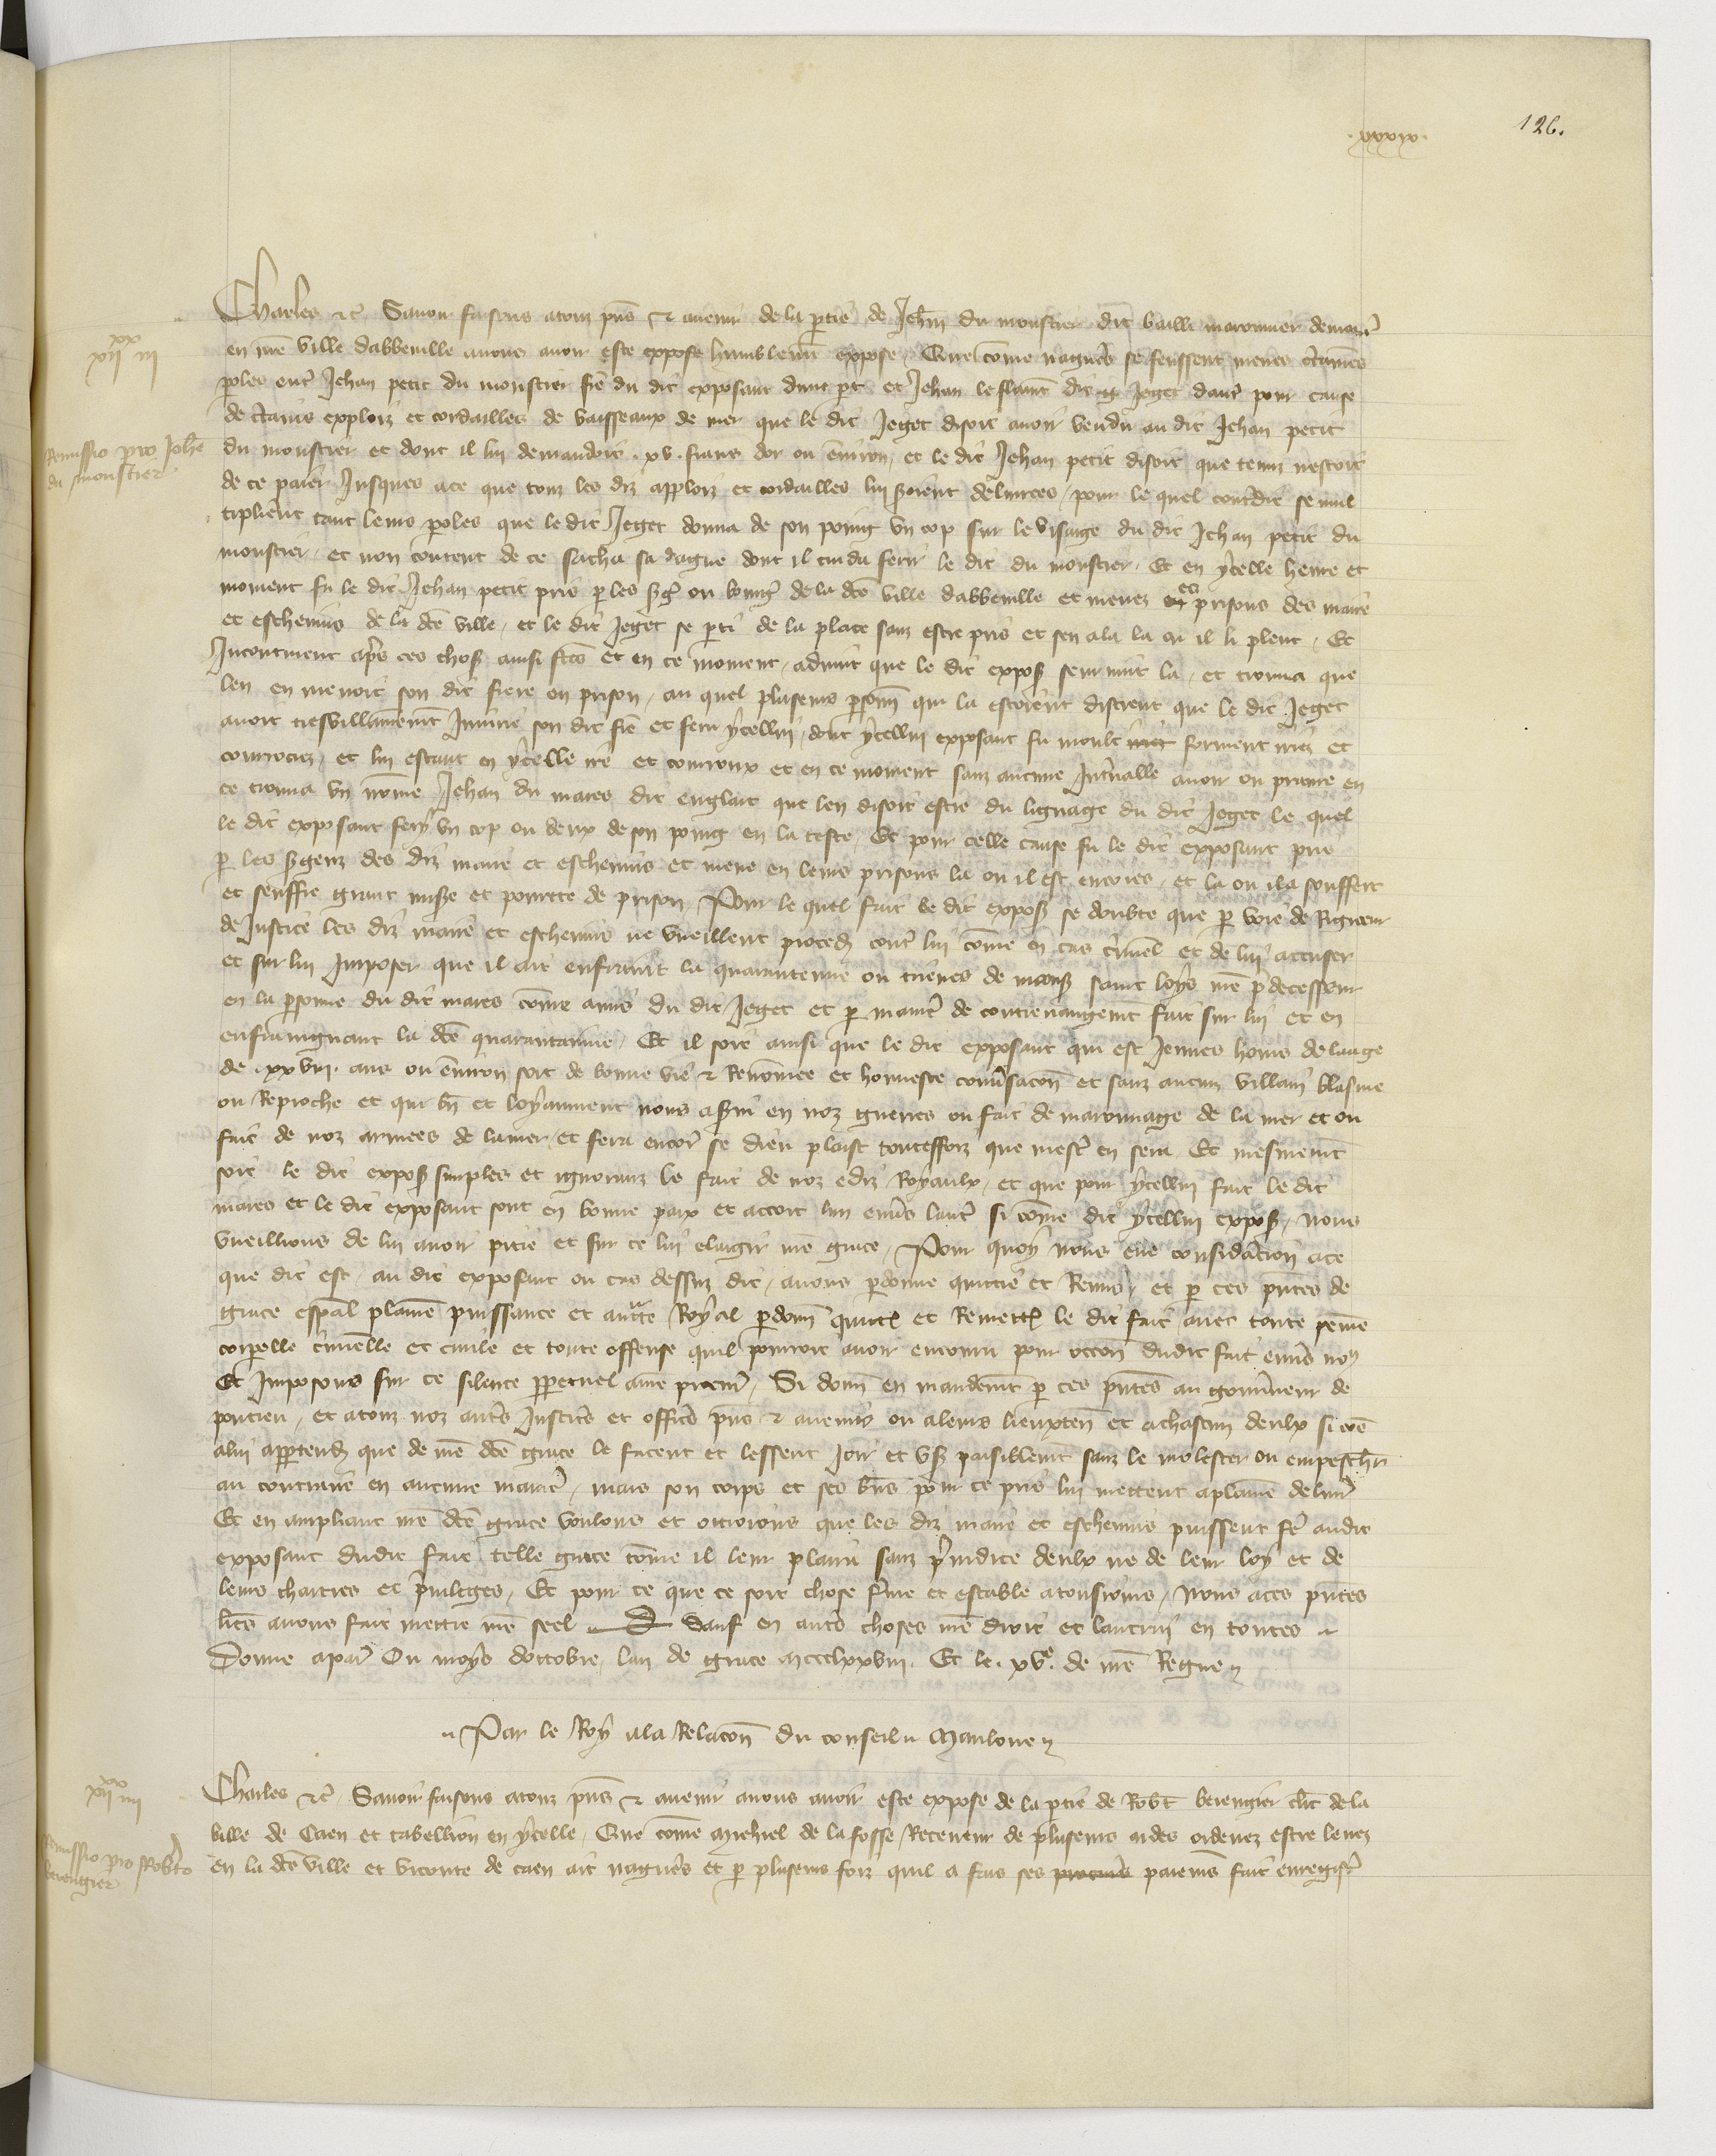 126.
.xxxix.
Charles etc. Savoir faisons a touz pñs et avenir de la ptie de Jehan du monstier dit Bailli maronnier demour̃
xx
xii iii
en nr̃e ville dabbeville avons avoir este expose humblemt expose. Que com̃e nagueres se feussent meues ctainẽs
poles entr̃ Jehan petit du monstier fr̃e du dit exposant dune pt et Jehan le flament dit Jeget dautr̃ pour cause
de ctains exploiz et cordailles de vaisseaux de mer que le dit Jeget disoit avoir vendu au dit Jehan petit
Remissio pro Johe
du monstier
du monstier et dont il lui demandoit .xv. frans dor ou environ, et le dit Jehan petit disoit que tenu nestoit
de ce paier Jusques ace que touz les diz apploiz et cordailles lui soient delivrees, pour le quel contdit se mul
tiplierent tant leurs poles que le dit Jeget donna de son poing un cop sur le visaige du dit Jehan petit du
monstier, et non content de ce sacha sa dague dont il cuida ferir le dit du monstier. Et en ycelle heure et
moment fu le dit Jehan petit pris p les sg̃ ou bonnes de la dce ville dabbeville et menez es prisons des maire
et eschevins de la dce ville, et le dit Jeget se pti de la place sanz estre pris et sen ala la ou il li pleut. Et
Incontinent apres ces choses ainsi fctes et en ce moment, advint que le dit expos̃ seurvint la, et trouva que
len en menoit son dit frere en prison, au quel pluseurs psonn̄ qui la estoient distrent que le dit Jeget
avoit tresvillainement Iniurie son dit fr̃e et feru ycellui, dont ycellui exposant fu moult forment iriez et
courociez, et lui estant en ycelle ire et couroux et en ce moment sanz aucune Intvalle avoir ou prenre en
ce trouva un nom̃e Jehan du mares dit englait que len disoit estre du lignage du dit Jeget le quel
le dit exposant fery un cop ou deux de son poing en la teste. Et pour celle cause fu le dit exposant pris
p les sgenz des diz maire et eschevins et mene en leurs prisons la ou il est encores, et la ou il a souffert
et seuffre grant misere et povrete de prison. Pour le quel fait le dit expos̃ se doubte que p voie de Rigueur
de Justice les diz maire et eschevins ne vueillent proceder contr̃ lui com̃e en cas criminel et de lui accuser
et sur lui Imposer que il ait enfraint la quarantenne ou trieves de mons̃ saint Loys nr̃e pdecesseur
en la psonne du dit mares com̃e amis du dit Jeget et p manir̃e de contrevangemt fait sur lui et en
enfraingnant la dce quarantainne. Et il soit ainsi que le dit exposant qui est Jeunes homs de laage
de .xxviii. ans ou environ soit de bonne vie et Renommee et honneste convsacion et sanz aucun villain blasme
ou Reproche et qui bn̄ et loyaument nous a servi en noz guerres ou fait de maronnage de la mer et ou
fait de noz armees de la mer, et fera encor̃ se dieu plaist toutesfoiz que mestr̃ en sera. Et mesmemt
soit le dit expos̃ simples et ignorans le fait de noz ediz Royaulx, et que pour ycellui fait le dit
mares et le dit exposant sont en bonne paix et accort lun envers lautr̃ si com̃e dit ycellui expos̃, nous
vueillions de lui avoir pitie et sur ce lui elargir nr̃e grace. Pour quoy nous eue considacion ace
que dit est, au dit exposant ou cas dessuz dit, avons pdonne quittie et Remis, et p ces pñtes de
grace espal̃ plaine puissance et aucte Royal pdonn̄ quitt̃ et Remett̃ le dit fait avec toute peine
corporelle criminelle et civile et toute offense quil pourroit avoir encouru pour occon dudit fait envers nous
Et Imposons sur ce silence ppetuel a nr̃e procur̃. Si donn̄ en mandemt p ces pñtes au gouverneur de
pontieu, et a touz noz autres Justiciers et officiers pñs et avenir ou a leurs lieuxten̄ et achascun deulx si com̃e
a lui apptendra que de nr̃e dce grace le facent et lessent Joir et user paisiblement sanz le molester ou empeschier
au contraire en aucune manier̃, mais son corps et ses biens pour ce pris lui mettent a plaine delivr̃
Et en ampliant nr̃e dce grace voulons et octroions que les diz maire et eschevins puissent fer̃ audit
exposant dudit fait telle grace com̃e il leur plaira sanz prejudice deulx ne de leur loy et de
leurs chartres et privileges. Et pour ce que ce soit chose ferme et estable a tousiours, Nous a ces pñtes
lr̃es avons fait mettre nr̃e seel. Sauf en autres choses nr̃e droit et lautrui en toutes.
Donne a paris Ou moys doctobre lan de grace mccclxxviii. Et le .xve. de nr̃e Regne
Par le Roy a la Relacon du conseil. Maulone
xx
xii iiii
Charles etc. Savoir faisons a touz pñs et avenir avons avoir este expose de la ptie de Robt berengier clerc de la
ville de Caen et tabellion en ycelle. Que com̃e Michiel de la fosse Receveur de pluseurs aides ordenez estre levez
Remissio pro Robto
berengier
en la dce ville et viconte de caen ait nagueres et p pluseurs foiz quil a fais ses paiemens fait enregistr̃